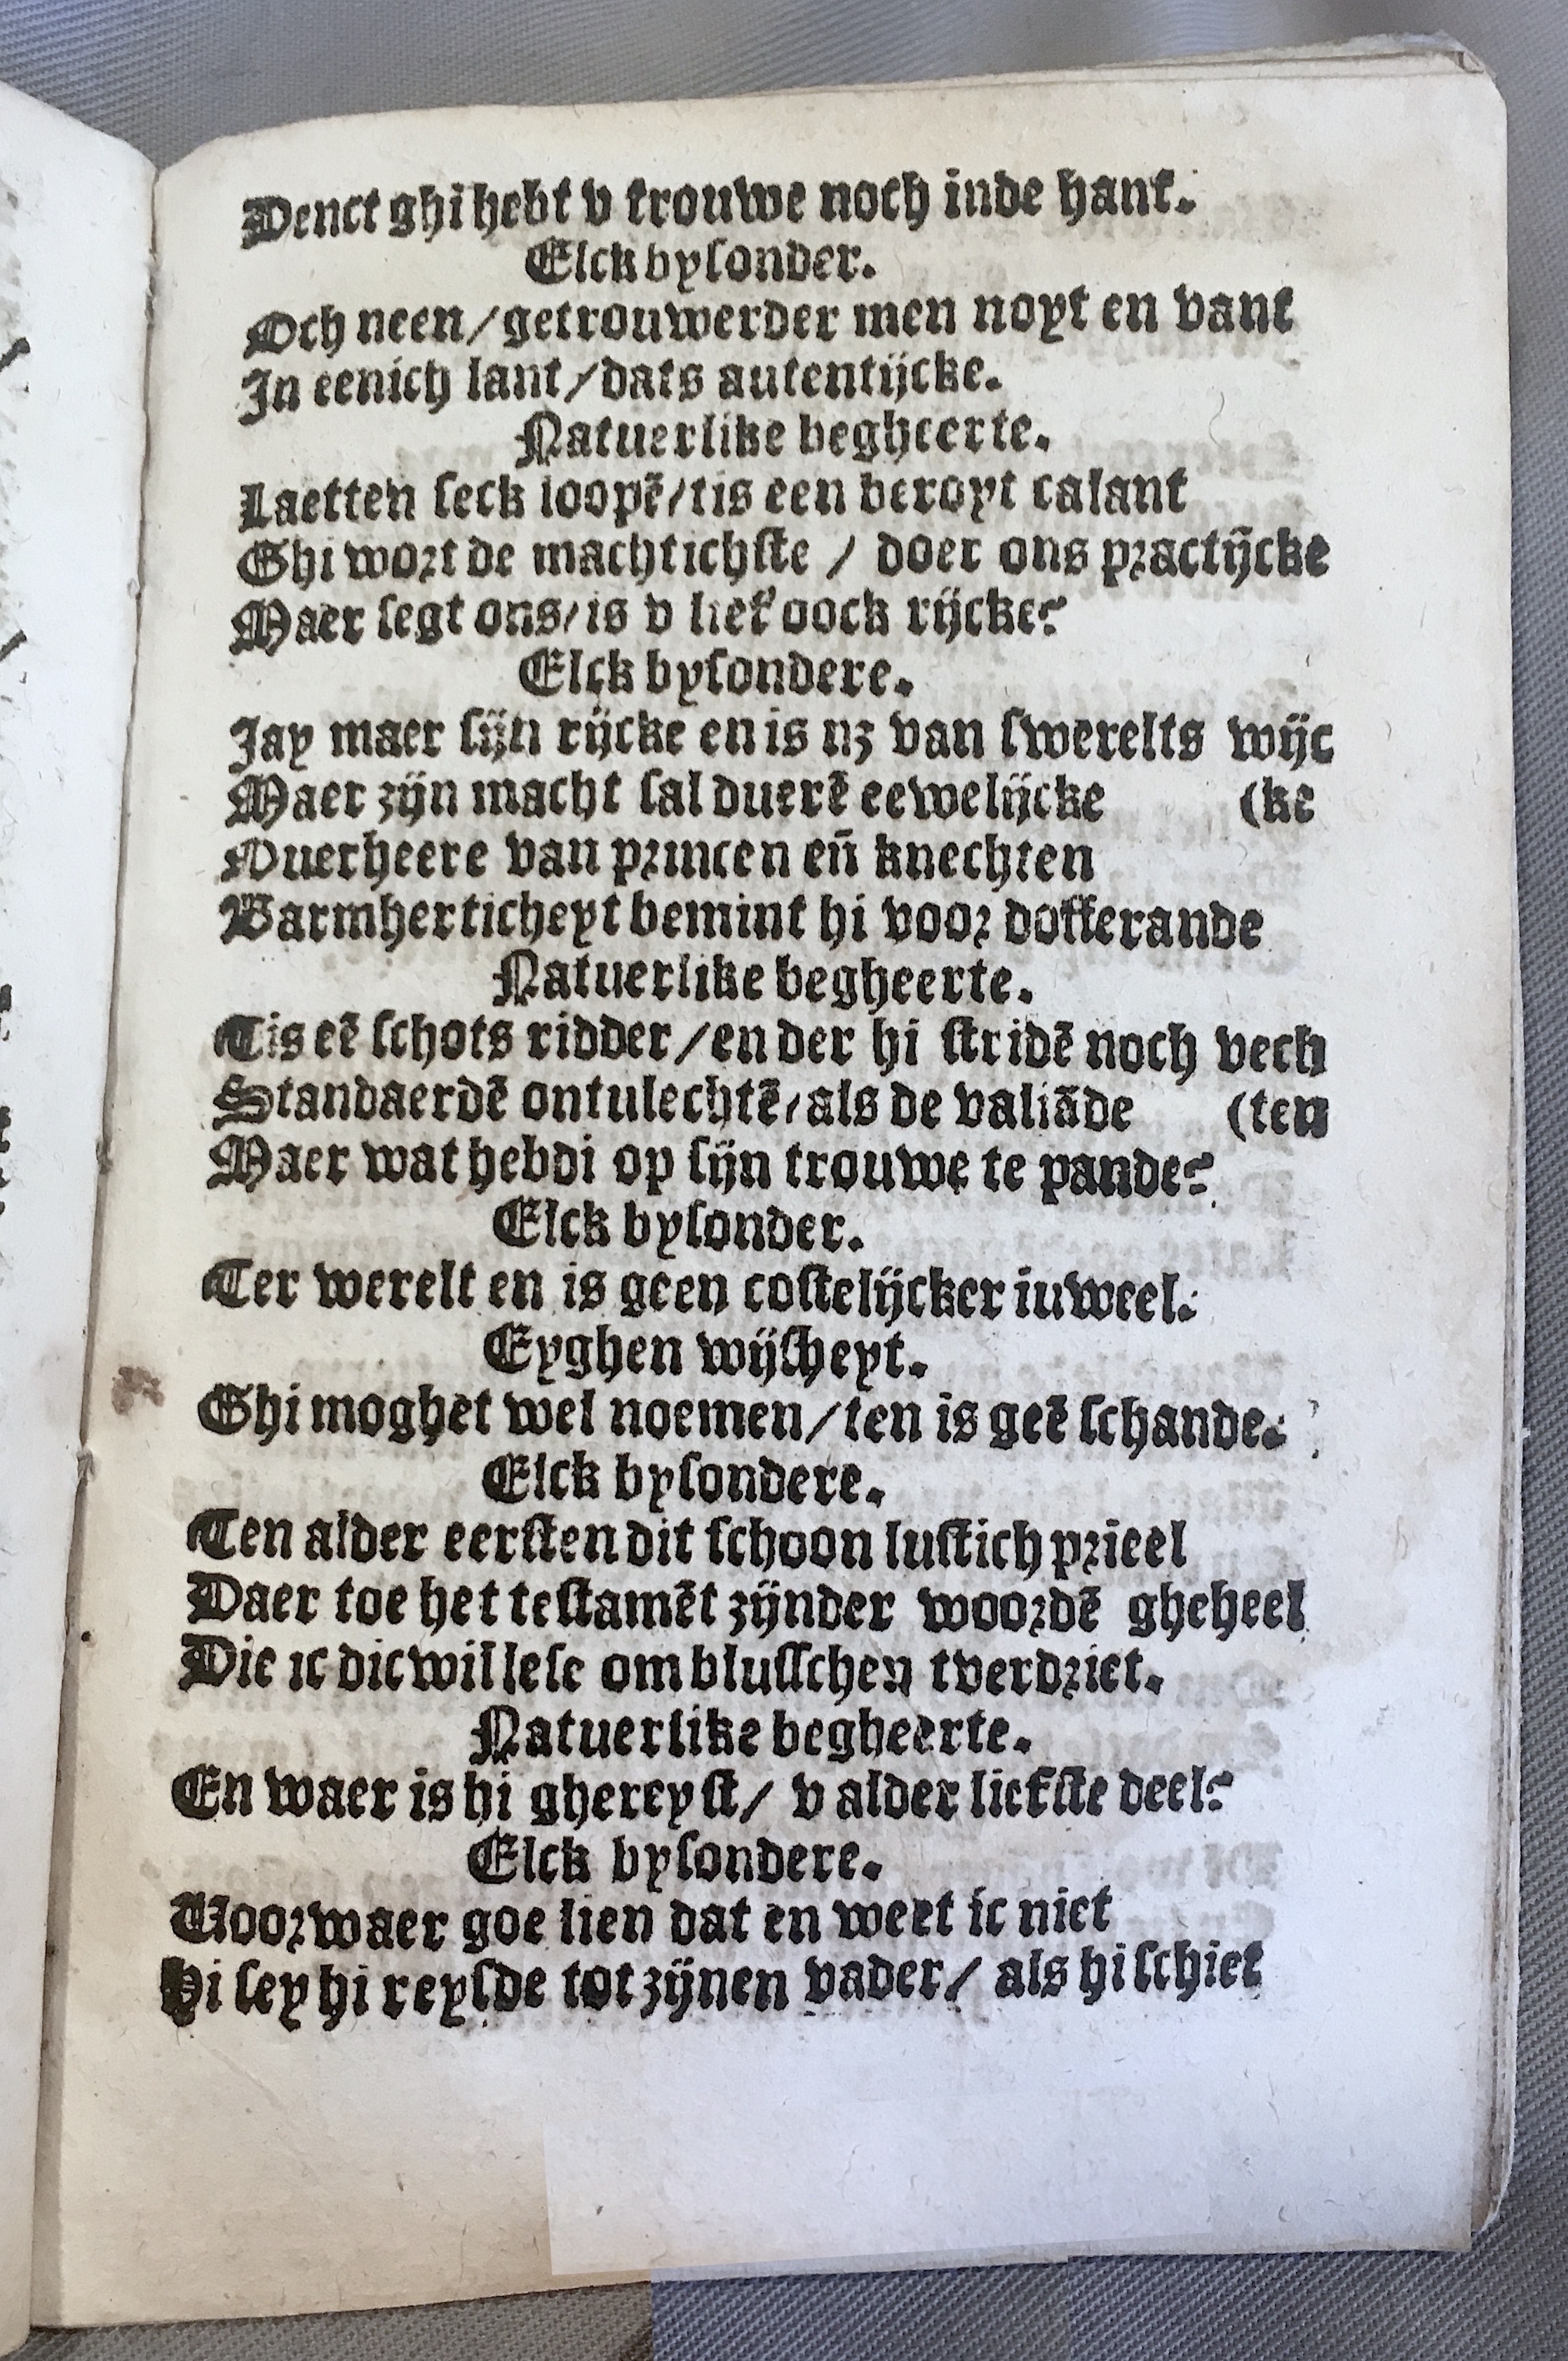 Denct ghi hebt v trouwe noch inde hant.
Elck bysonder.
Och neen/getrouwerder men noyt en vant
In eenich lant/dats autentijcke.
Natuerlike begheerte.
Laetten seck loopē/tis een beroyt calant
Ghi wort de machtichste / doer ons practijcke
Maer segt ons/is v lief oock rijcke?
Elck bysondere.
Jay maer sijn rijcke en is nz van swerelts wijc
Maer zijn macht sal duerē eewelijcke (ke
Ouerheere van princen eñ knechten
Barmherticheyt bemint hi voor dofferande
Natuerlike begheerte.
Tis eē schots ridder/en der hi stridē noch vech
Standaerdē ontulechtē/als de valiāde (ten
Maer wat hebdi op sijn trouwe te pande?
Elck bysonder.
Ter werelt en is geen costelijcker iuweel.
Eyghen wijsheyt.
Ghi moghet wel noemen/ten is geē schande.
Elck bysondere.
Ten alder eersten dit schoon lustich prieel
Daer toe het testamēt zijnder woordē gheheel
Die ic dicwil lese om blusschen tverdriet.
Natuerlike begheerte.
En waer is hi ghereyst/ v alder liefste deel?
Elck bysondere.
Voorwaer goe lien dat en weet ic niet
Hi sey hi reysde tot zijnen vader/ als hi schiet